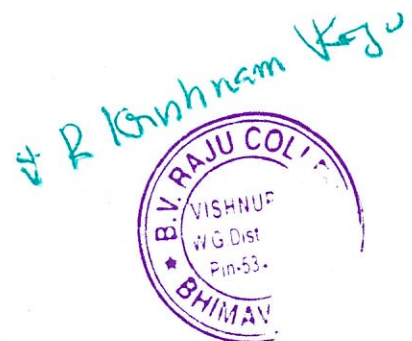 R Krishnam Raju
B.V. RAJU COLL
VISHNUP
W.G.Dist
Pin-53
BHIMAV